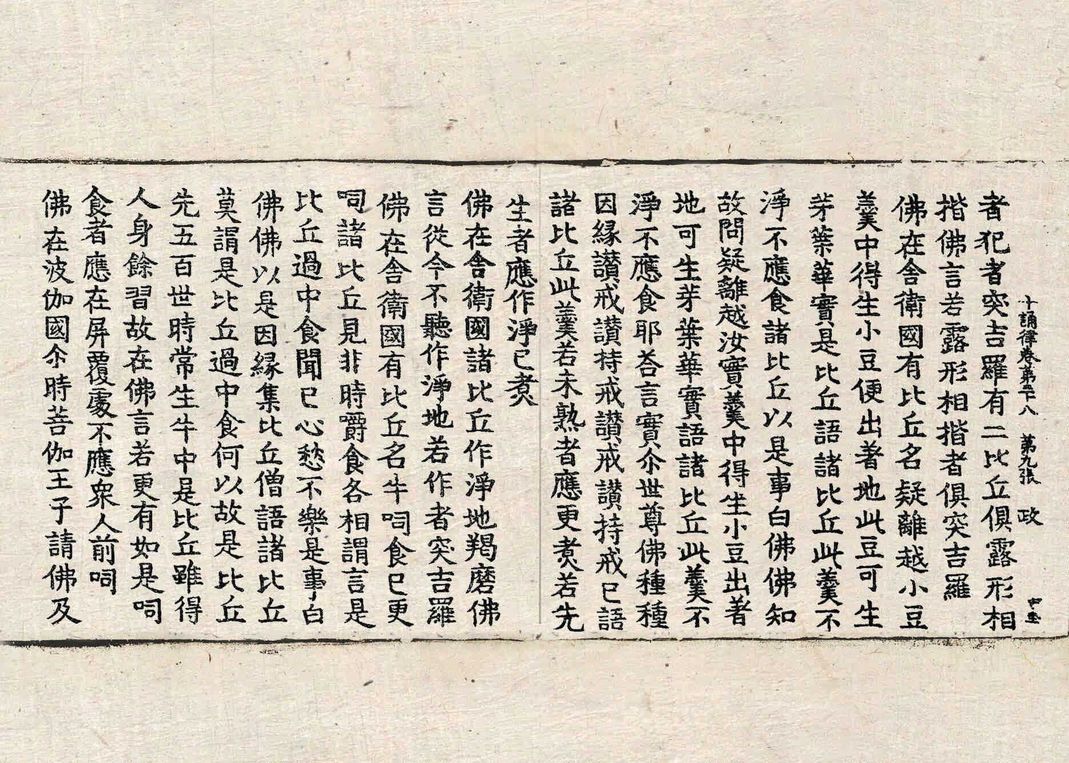 十誦律卷第五十八　第九張　政
者犯者突吉羅有二比丘俱露形相
揩佛言若露形相揩者俱突吉羅
佛在舍衛國有比丘名疑離越小豆
羹中得生小豆便出著地此豆可生
芽葉華實是比丘語諸比丘此羹不
淨不應食諸比丘以是事白佛佛知
故問疑離越汝實羹中得生小豆出著
地可生芽葉華實語諸比丘此羹不
淨不應食耶荅言實尒世尊佛種種
因緣讃戒讃持戒讃戒讃持戒已語
諸比丘此羹若未熟者應更煑若先
生者應作淨已煑
佛在舍衛國諸比丘作淨地羯磨佛
言從今不聽作淨地若作者突吉羅
佛在舍衛國有比丘名牛呞食已更
呞諸比丘見非時嚼食各相謂言是
比丘過中食聞已心愁不樂是事白
佛佛以是因緣集比丘僧語諸比丘
莫謂是比丘過中食何以故是比丘
先五百世時常生牛中是比丘雖得
人身餘習故在佛言若更有如是呞
食者應在屏覆處不應衆人前呞
佛在波伽國尒時菩伽王子請佛及